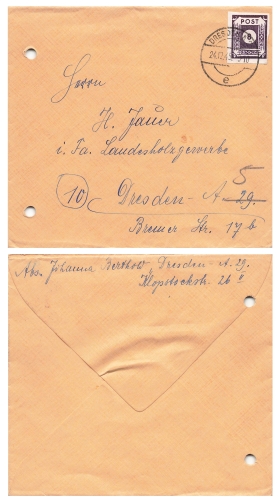 POST
DRESDEN
24.12.
e
Herrn
H. Jauer
i. Fa. Landesholzgewerbe
10 Dresden-A 29. 5
Bremer Str. 17b
Abs. Johanna Berthold, Dresden-A. 29.
Klopstockstr. 26